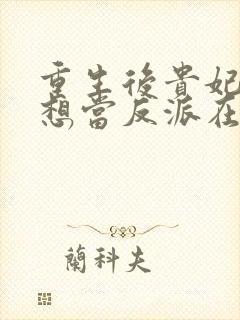 重生後貴妃
想當反派在
蘭科夫